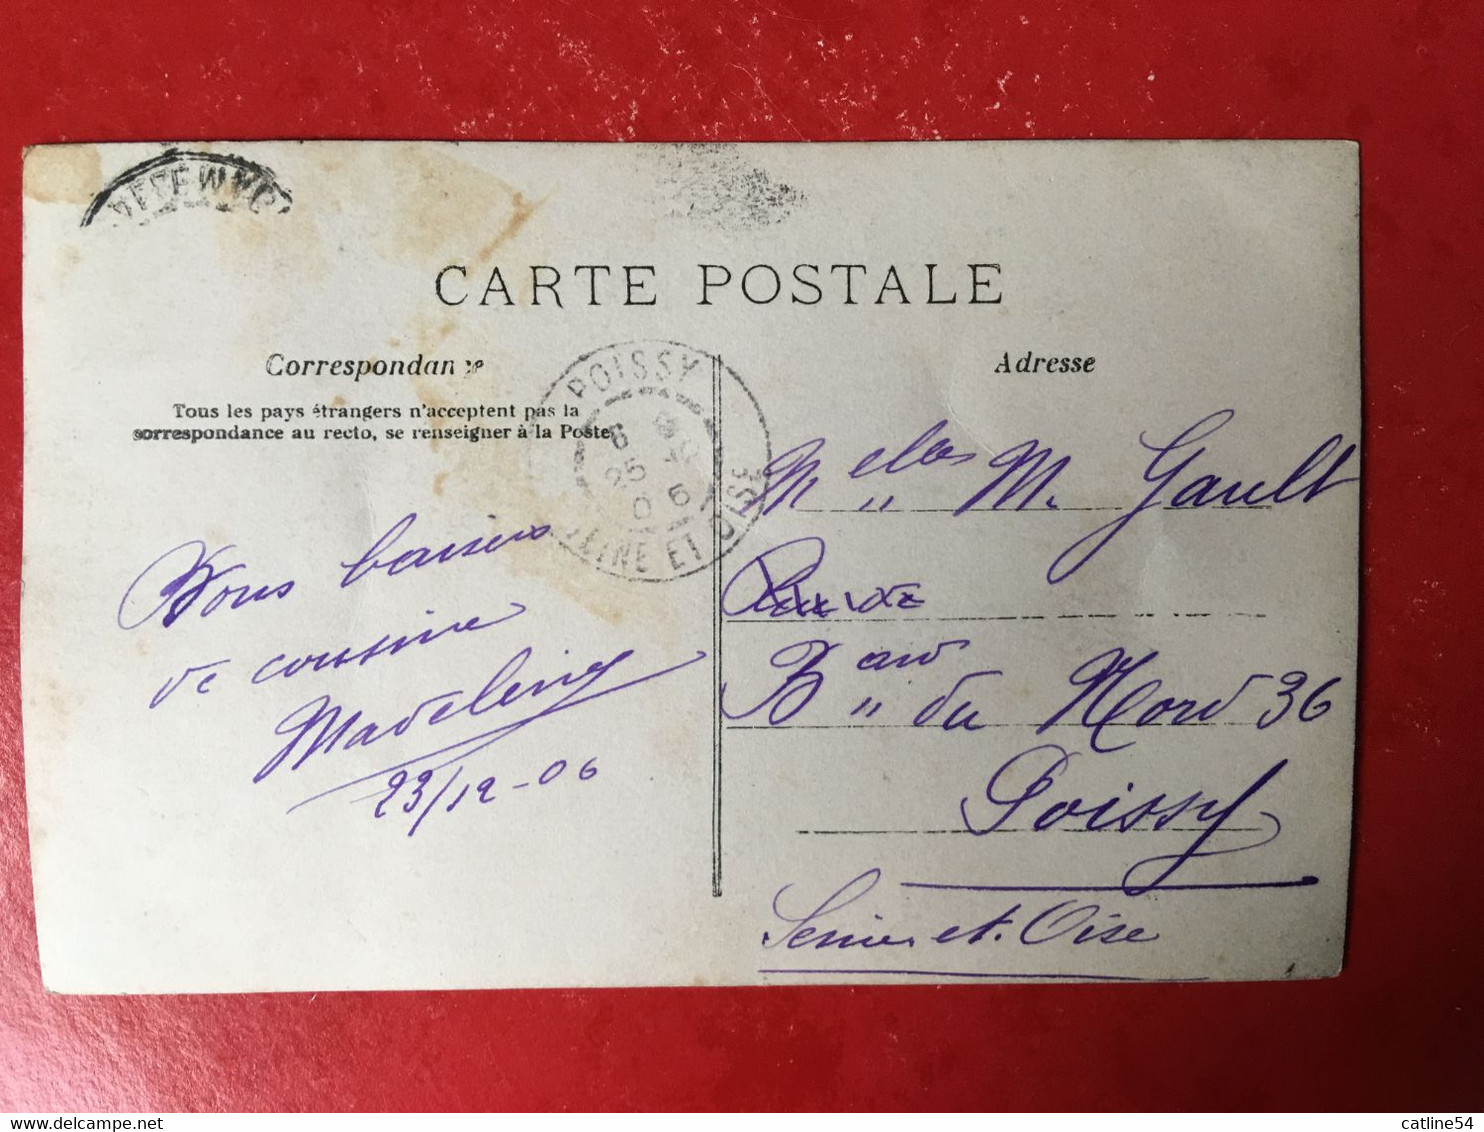 CARTE POSTALE
Correspondance
Tous les pays étrangers n'acceptent pas la
correspondance au recto, se renseigner à la Poste
POISSY
6
25 12
06
SEINE ET OISE
Bons baisers
de cousine
Madeleine
23/12-06
Adresse
M elles M. Gault
Bard du Nord 36
Poissy
Seine et. Oise
catline54